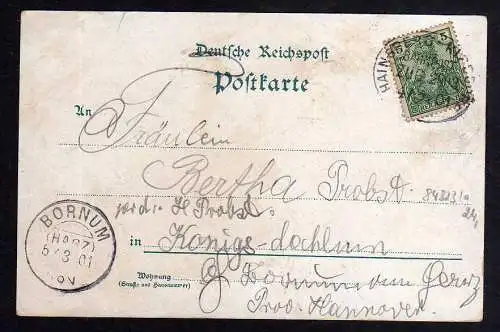 Deutsche Reichspost
Postkarte
An
Fräulein
Bertha Probst
H Probst
in Königs-dahlum
Wohnung
(Straße und Hausnummer)
Bornum am Harz
Prov. Hannover.
BORNUM
(HARZ)
5/3 01
HAINS